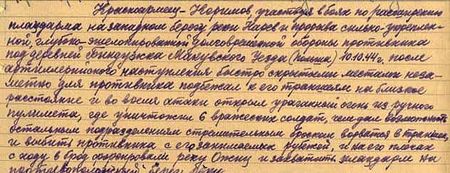 Красноармеец Неримов участвуя в боях по расширению
плацдарма на западном берегу реки Нарев и прорыва сильно укреплен-
ной, глубоко эшелонированной долговременной обороны противника
под деревней Макувского Уезда (Польша) 10.10.44г. после
артиллерийского наступления быстро скрытными местами неза-
метно для противника подбежал к его траншеям на близкое
расстояние и во время атаки открыл ураганный огонь из ручного
пулемета, где уничтожил 6 вражеских солдат, чем дал возможность
остальным подразделениям стремительным броском ворваться в траншеи,
и выбить противника с его занимаемых рубежей, и на его плечах
с ходу в брод форсировали реку и захватить плацдарм на
берегу